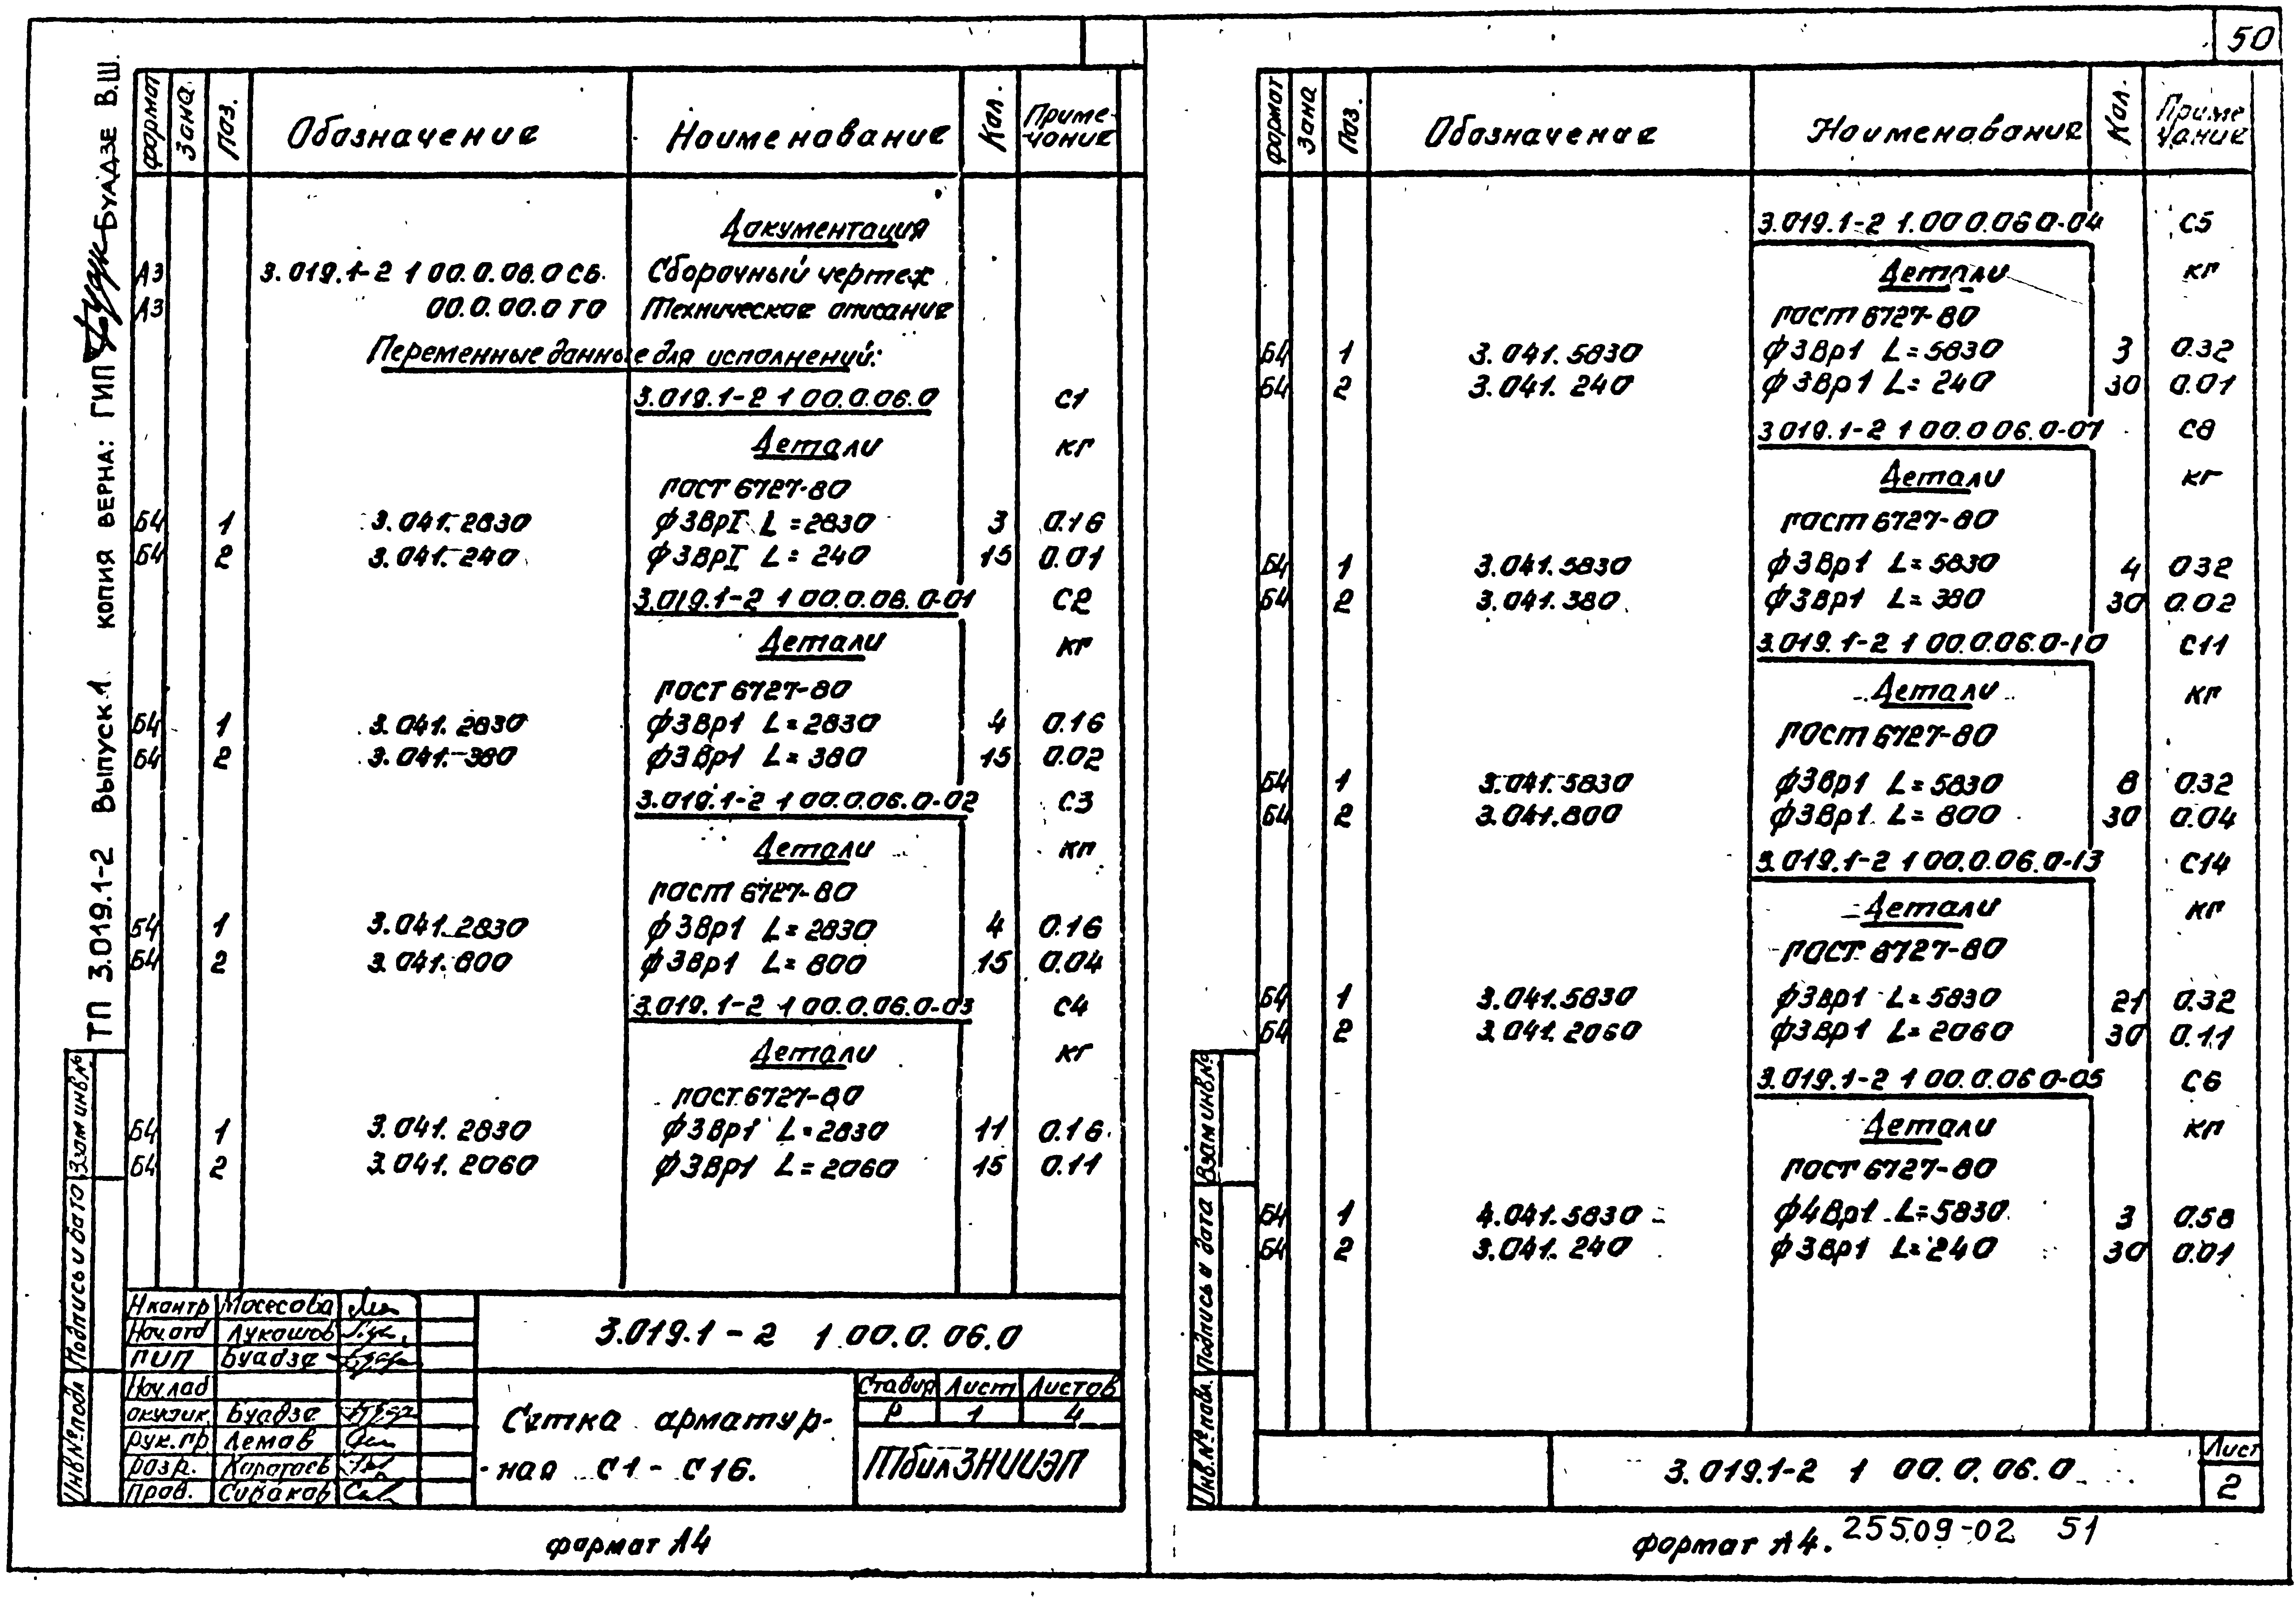 50
ТП 3.019.1-2 Выпуск 1 КОПИЯ ВЕРНА: ГИП БУАДЗЕ В.Ш.
Формат Зона Поз. Обозначение Наименование Кол. Приме-чание
Документация
А3 3.019.1-2 1 00.0.06.0 СБ. Сборочный чертеж
А3 00.0.00.0 ТО Техническое описание
Переменные данные для исполнений:
3.019.1-2 1 00.0.06.0 С1
Детали кг
ГОСТ 6727-80
Б4 1 3.041.2830 ф3ВрI L=2830 3 0.16
Б4 2 3.041.240 ф3ВрI L=240 15 0.01
3.019.1-2 1 00.0.06.0-01 С2
Детали кг
ГОСТ 6727-80
Б4 1 3.041.2830 ф3Вр1 L=2830 4 0.16
Б4 2 3.041.380 ф3Вр1 L=380 15 0.02
3.019.1-2 1 00.0.06.0-02 С3
Детали кг
ГОСТ 6727-80
Б4 1 3.041.2830 ф3Вр1 L=2830 4 0.16
Б4 2 3.041.800 ф3Вр1 L=800 15 0.04
3.019.1-2 1 00.0.06.0-03 С4
Детали кг
ГОСТ 6727-80
Б4 1 3.041.2830 ф3Вр1 L=2830 11 0.16
Б4 2 3.041.2060 ф3Вр1 L=2060 15 0.11
Инв № подл Подпись и дата Взам инв.№
Н контр Мосесова
Нач.отд Лукашов
ГИП Буадзе
Нач.лаб
Буадзе
Рук.гр Лемов
разр. Каратаев
Пров. Сиваков
3.019.1-2 1 00.0.06.0
Сетка арматур-
ная С1-С16.
Стадия Лист Листов
Р 1 4
ТбилЗНИИЭП
формат А4
Формат Зона Поз. Обозначение Наименование Кол. Приме чание
3.019.1-2 1.00 0.06 0-04 С5
Детали кг
ГОСТ 6727-80
Б4 1 3.041.5830 ф3Вр1 L=5830 3 0.32
Б4 2 3.041.240 ф3Вр1 L=240 30 0.01
3.019.1-2 1 00.0 06.0-07 С8
Детали кг
ГОСТ 6727-80
Б4 1 3.041.5830 ф3Вр1 L=5830 4 0.32
Б4 2 3.041.380 ф3Вр1 L=380 30 0.02
3.019.1-2 1 00.0.06.0-10 С11
Детали кг
ГОСТ 6727-80
Б4 1 3.041.5830 ф3Вр1 L=5830 8 0.32
Б4 2 3.041.800 ф3Вр1 L=800 30 0.04
3.019.1-2 1 00.0.06.0-13 С14
Детали кг
ГОСТ 6727-80
Б4 1 3.041.5830 ф3Вр1 L=5830 21 0.32
Б4 2 3.041.2060 ф3Вр1 L=2060 30 0.11
3.019.1-2 1 00.0.06 0-05 С6
Детали кг
ГОСТ 6727-80
Б4 1 4.041.5830 ф4Вр1 L=5830 3 0.58
Б4 2 3.041.240 ф3Вр1 L=240 30 0.01
Инв.№ подл. Подпись и дата Взам инв.№
3.019.1-2 1 00.0.06.0
Лист
2
формат А4. 25509-02 51